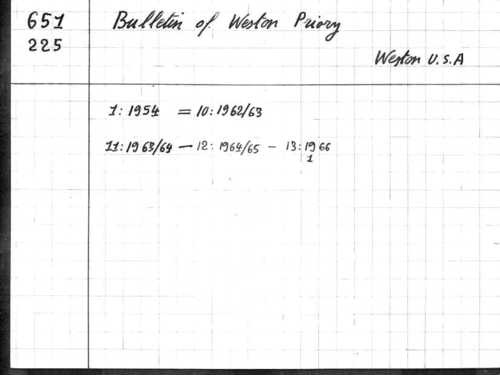 651
225
Bulletin of Weston Priory
Weston U.S.A
1: 1954 = 10: 1962/63
11: 1963/64 — 12: 1964/65 - 13: 1966
1